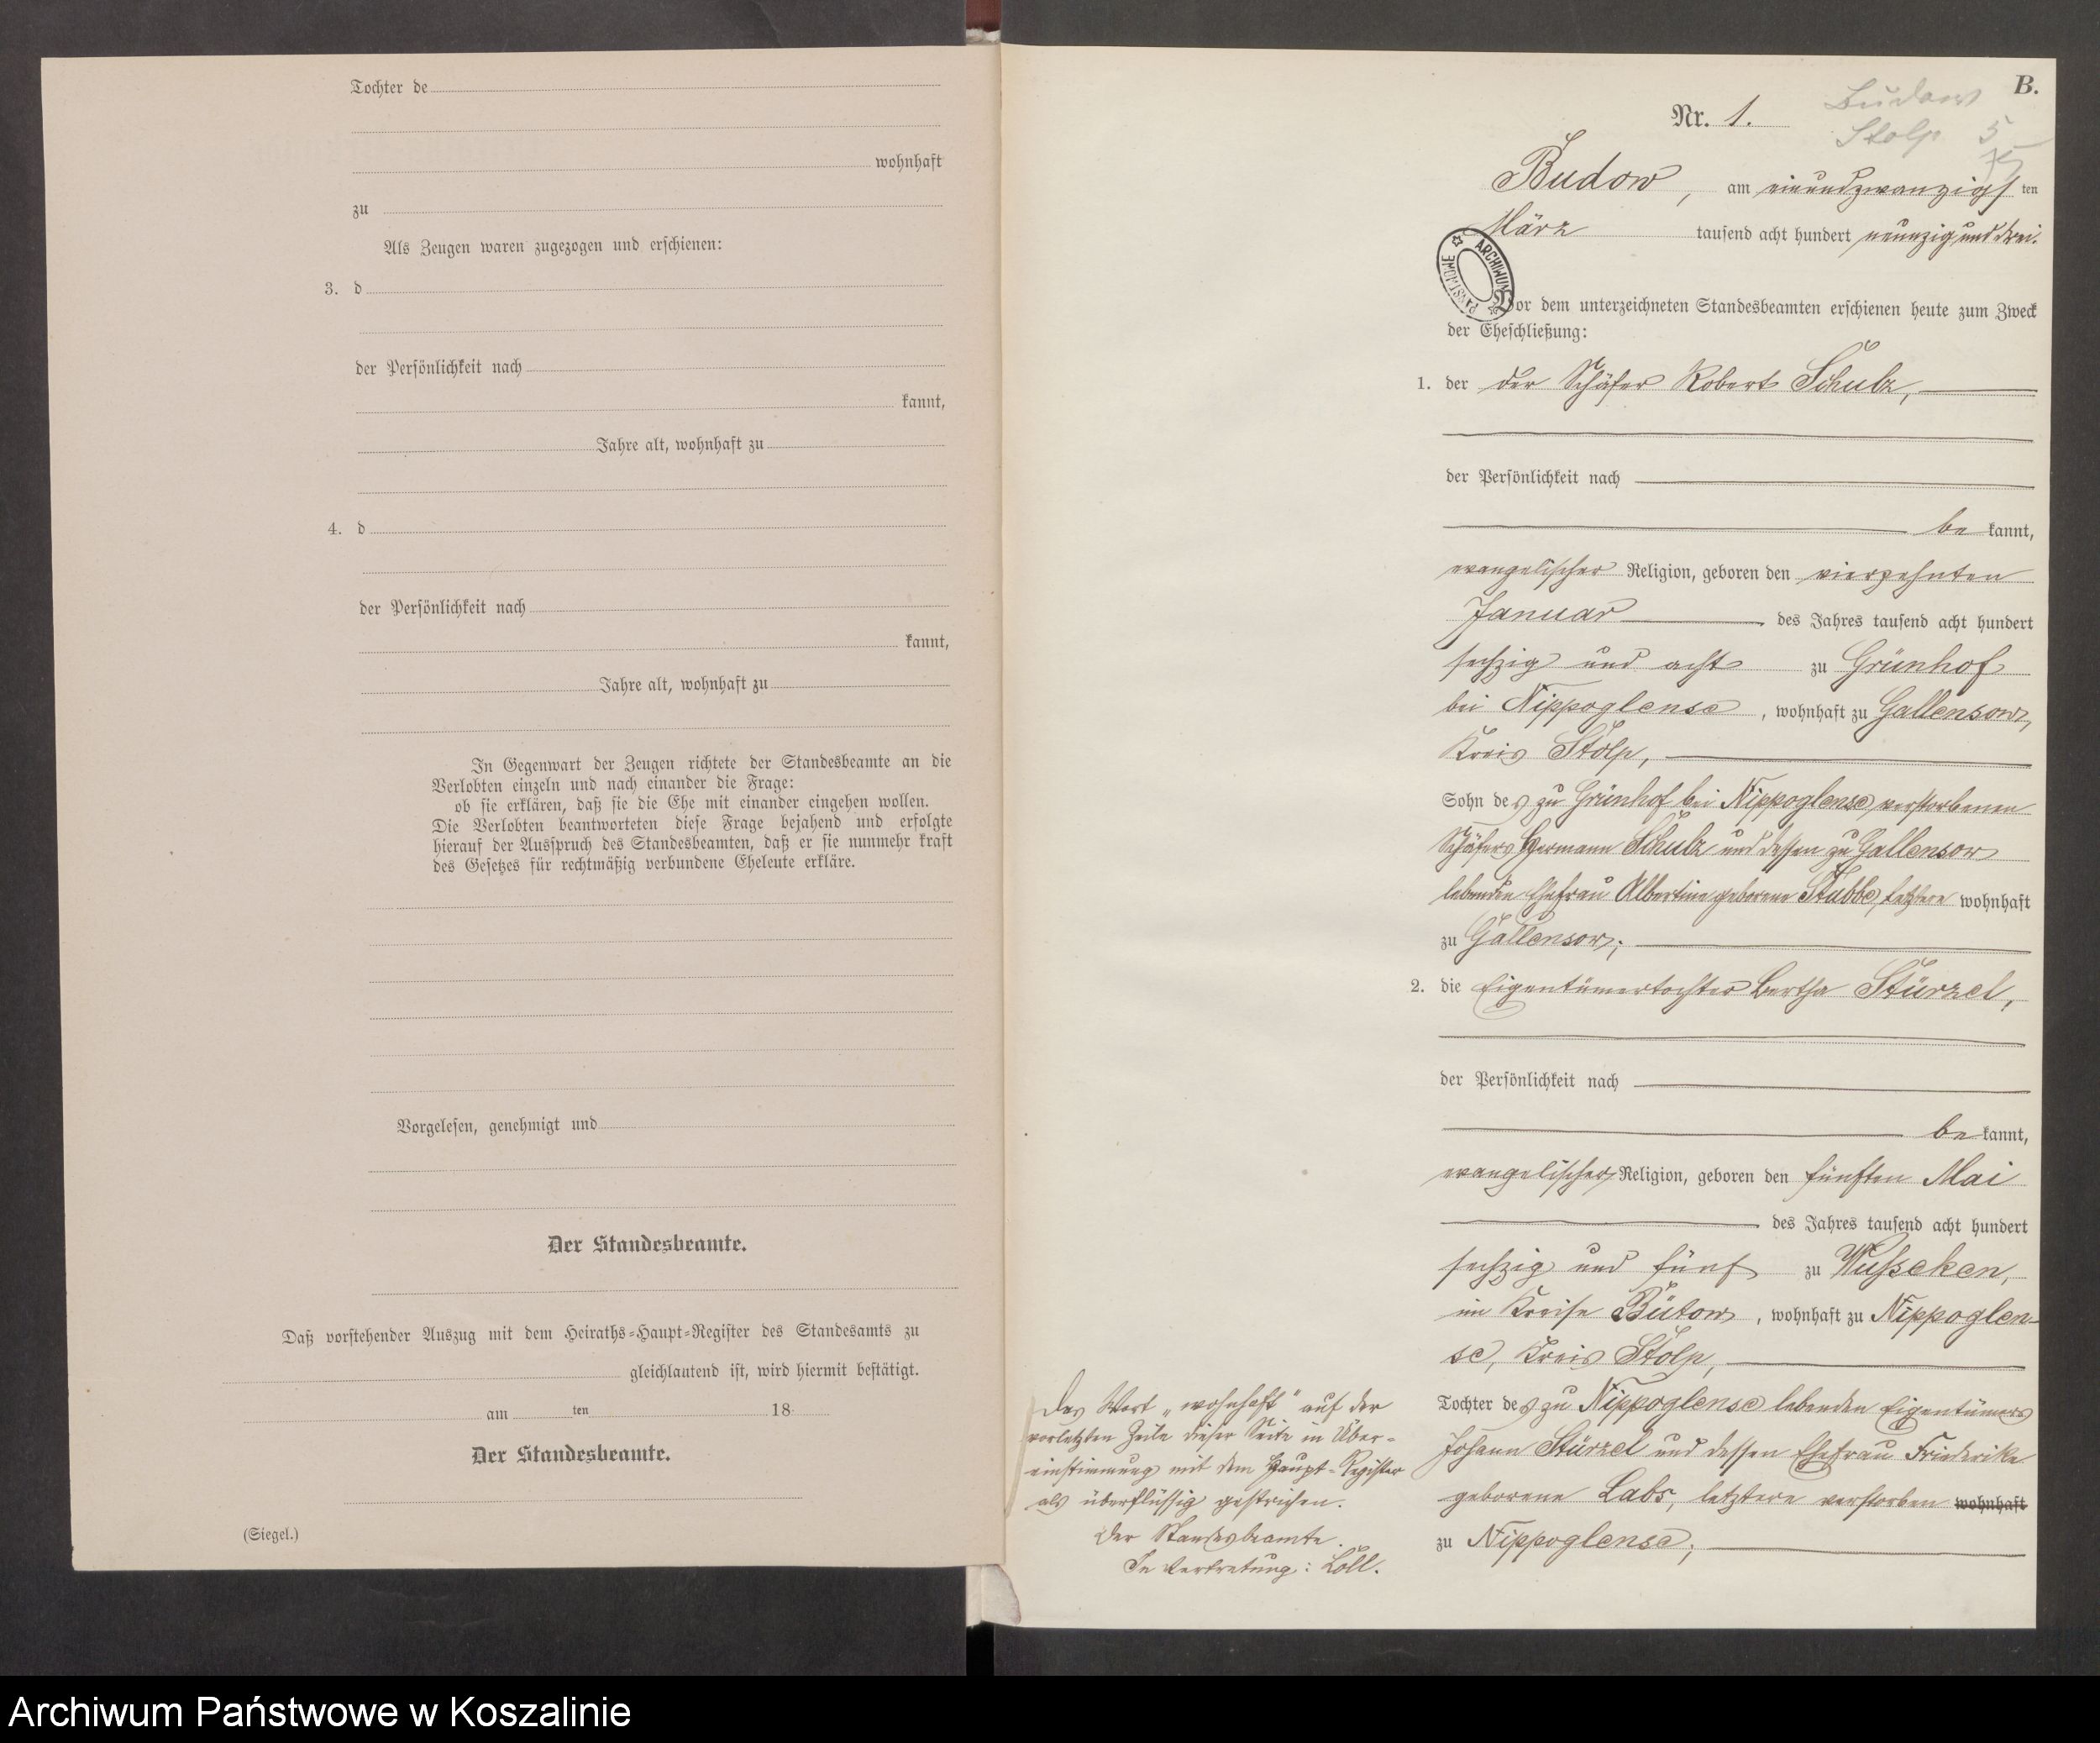 Tochter de
wohnhaft
zu
Als Zeugen waren zugezogen und erschienen:
3. d
der Persönlichkeit nach
kannt,
Jahre alt, wohnhaft zu
4. d
der Persönlichkeit nach
kannt,
Jahre alt, wohnhaft zu
In Gegenwart der Zeugen richtete der Standesbeamte an die
Verlobten einzeln und nach einander die Frage:
ob sie erklären, daß sie die Ehe mit einander eingehen wollen.
Die Verlobten beantworteten diese Frage bejahend und erfolgte
hierauf der Ausspruch des Standesbeamten, daß er sie nunmehr kraft
des Gesetzes für rechtmäßig verbundene Eheleute erkläre.
Vorgelesen, genehmigt und
Der Standesbeamte.
Daß vorstehender Auszug mit dem Heiraths-Haupt-Register des Standesamts zu
gleichlautend ist, wird hiermit bestätigt.
am ten 18
Der Standesbeamte.
(Siegel.)
B.
Budow
Stolp 5
Nr. 1.
Budow, am einundzwanzigsten
März tausend acht hundert neunzig und drei.
ARCHIWUM PAŃSTWOWE
Vor dem unterzeichneten Standesbeamten erschienen heute zum Zweck
der Eheschließung:
1. der der Schäfer Robert Schulz,
der Persönlichkeit nach
be kannt,
evangelischer Religion, geboren den vierzehnten
Januar des Jahres tausend acht hundert
sechzig und acht zu Grünhof
bei Nippoglense, wohnhaft zu Gallensow,
Kreis Stolp,
Sohn des zu Grünhof bei Nippoglense verstorbenen
Schäfers Hermann Schulz und dessen zu Gallensow
lebenden Ehefrau Albertine geborene Stubbe, letztere wohnhaft
zu Gallensow;
2. die Eigentümertochter Bertha Stürzel,
der Persönlichkeit nach
be kannt,
evangelischer Religion, geboren den fünften Mai
des Jahres tausend acht hundert
sechzig und fünf zu Wusseken,
im Kreise Bütow, wohnhaft zu Nippoglen-
se, Kreis Stolp,
Tochter des zu Nippoglense lebenden Eigentümers
Johann Stürzel und dessen Ehefrau Friederike
geborene Labs, letztere verstorben wohnhaft
zu Nippoglense;
Das Wort „wohnhaft“ auf der
vorletzten Zeile dieser Seite in Über-
einstimmung mit dem Haupt-Register
als überflüssig gestrichen.
Der Standesbeamte.
In Vertretung: Löll.
Archiwum Państwowe w Koszalinie